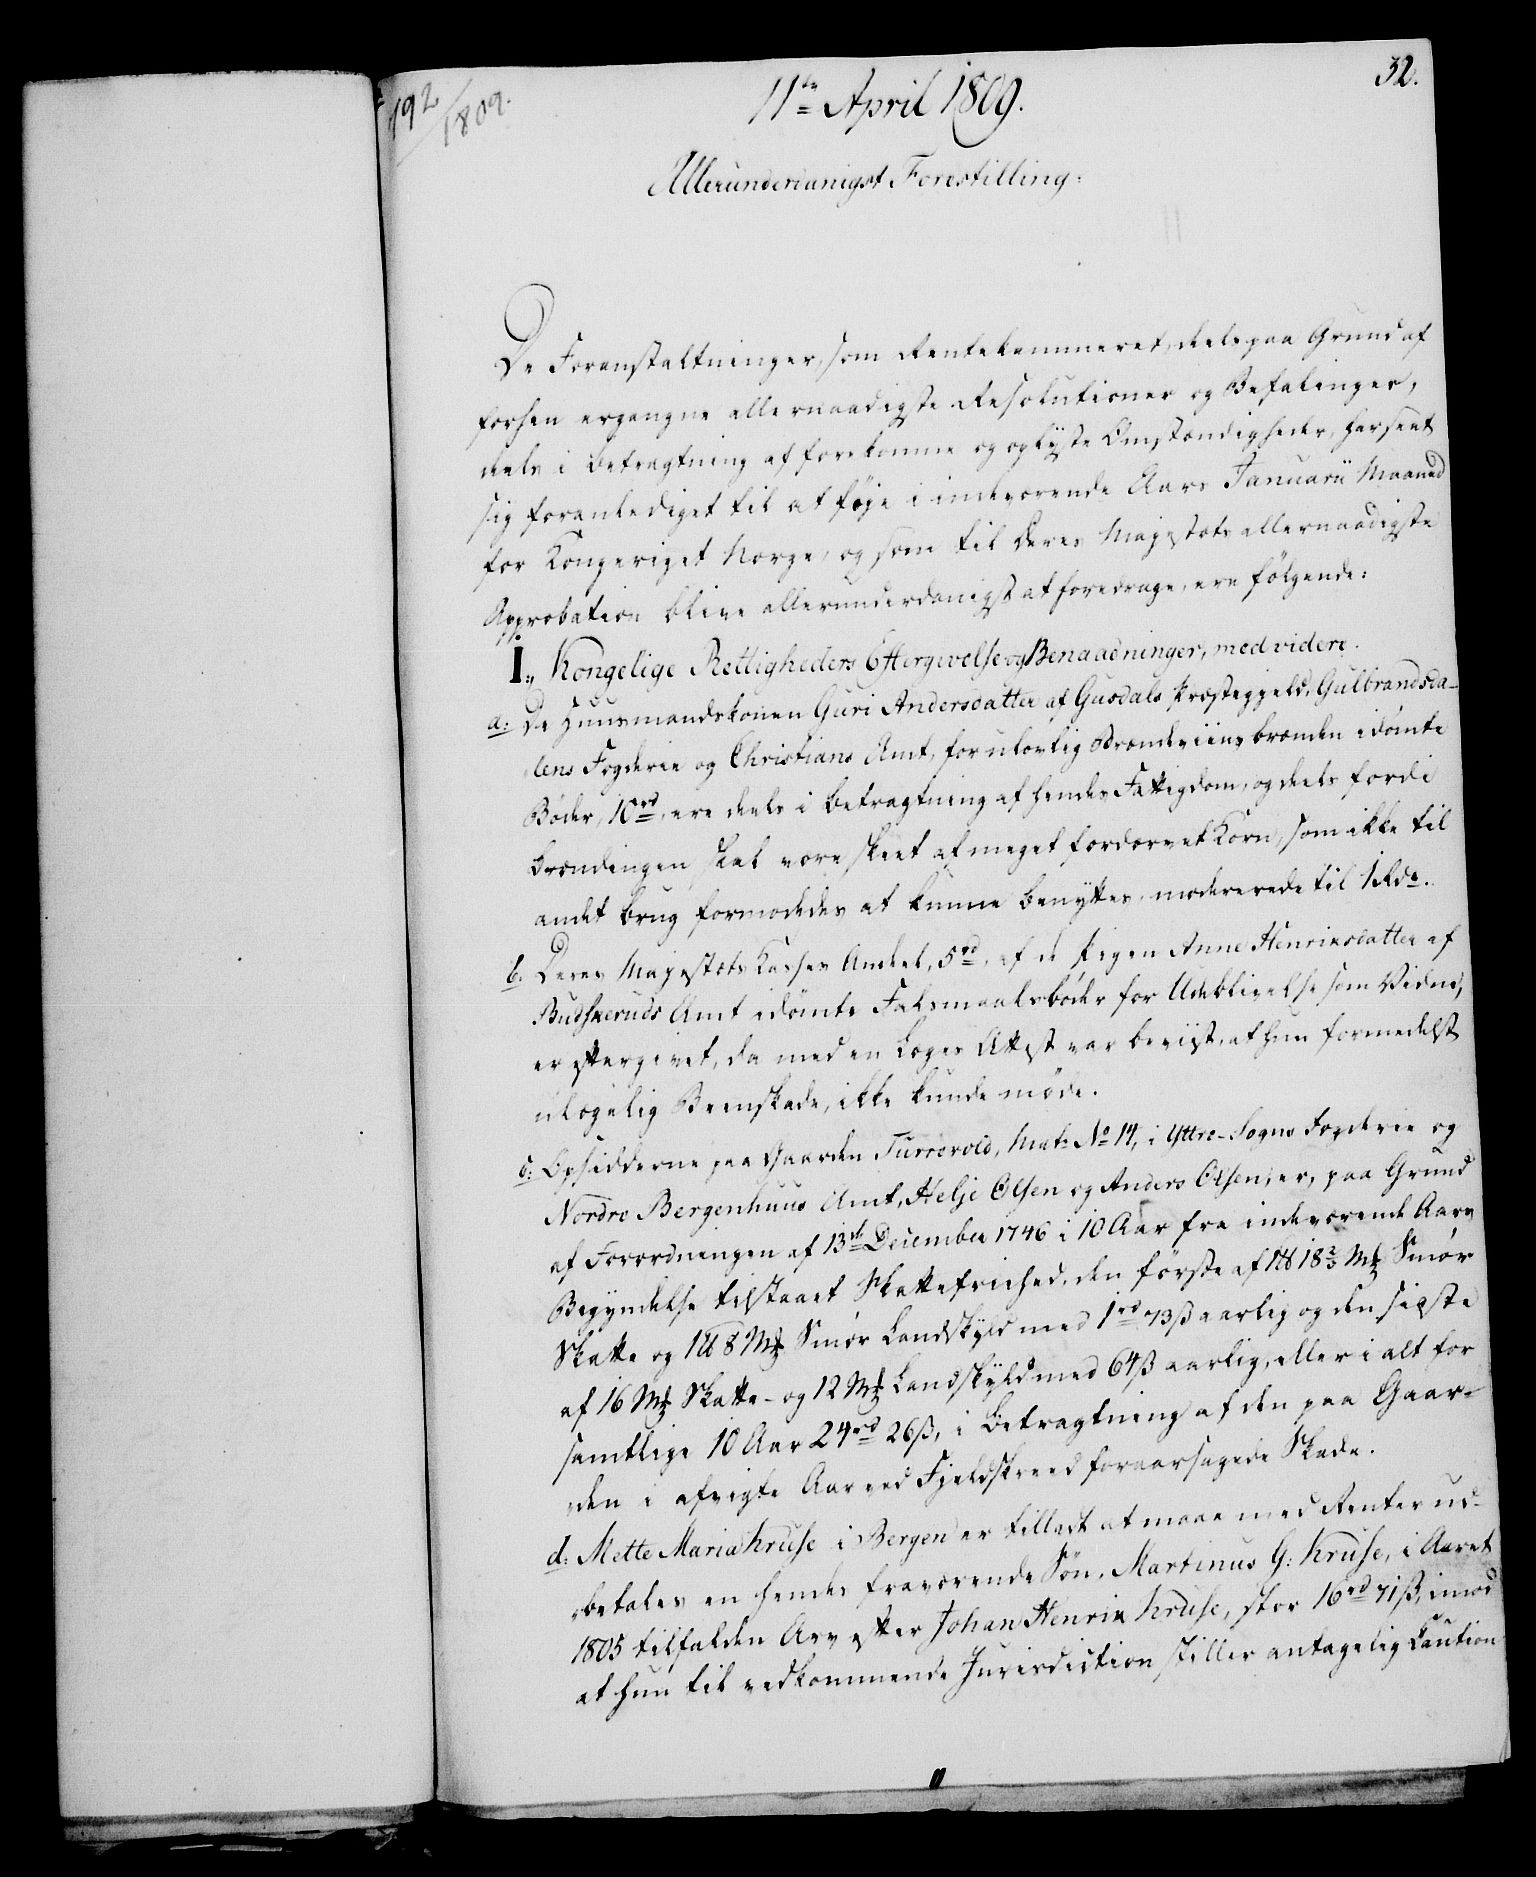 192/1809.
32.
11te April 1809.
Allerunderdanigst Forestilling:
De Foranstaltninger, som Rentekammeret, deels paa Grund af
forhen ergangne allernaadigste Resolutioner og Befalinger,
deels i Betragtning af forekomne og oplyste Omstændigheder, har seet
sig foranlediget til at föje i indeværende Aars Januarii Maaned
for Kongeriget Norge, og som til Deres Majestæts allernaadigste
Approbation blive allerunderdanigst at foredrage, ere fölgende:
I., Kongelige Rettigheders Eftergivelse og Benaadninger, med videre.
a: De Huusmandskonen Guri Andersdatter af Gusdals Præstegjeld, Gulbrandsda-
lens Fogderie og Christians Amt, for ulovlig Brændeviinsbrænden idömte
Böder, 10rd, ere deels i Betragtning af hendes Fattigdom, og deels fordi
Brændingen skal være skeet af meget fordærvet Korn, som ikke til
andet brug formodedes at kunne benyttes, modererede til 1 Rdr.
b. Deres Majestæts Kasses Andeel, 5rd, af de Pigen Anne Henriksdatter af
Budskeruds Amt idömte Falsmaalsböder for Udeblivelse som Vidne,
er eftergivet, da med en Læges Attest var beviist, at hun formedelst
ulægelig Beenskade, ikke kunde möde.
c: Opsidderne paa Gaarden Turrevold, Mat: No 14, i Yttre-Sogns Fogderie og
Nordre Bergenhuus Amt, Helje Olsen og Anders Olsen, er, paa Grund
af Forordningen af 13de December 1746 i 10 Aar fra indeværende Aars
Begyndelse tilstaaet Skattefriehed, den förste af 1 ℔ 18⅔ Mk Smör
Skatte og 1 ℔ 8 Mk Smör Landskyld med 1rd 73ß aarlig og den sidste
af 16 Mk Skatte- og 12 Mk Landskyld med 64ß aarlig, eller i alt for
samtlige 10 Aar 24rd 26ß, i Betragtning af den paa Gaar-
den i afvigte Aar ved Fjeldskreed foraarsagede Skade.
d: Mette Maria Kruse i Bergen er tilladt at maae med Renter ud-
betales en hendes fraværende Sön, Martinus G: Kruse, i Aaret
1805 tilfalden Arv efter Johan Henrik Kruse, stor 16rd 71ß, imod
at hun til vedkommende Jurisdiction stiller antagelig Caution